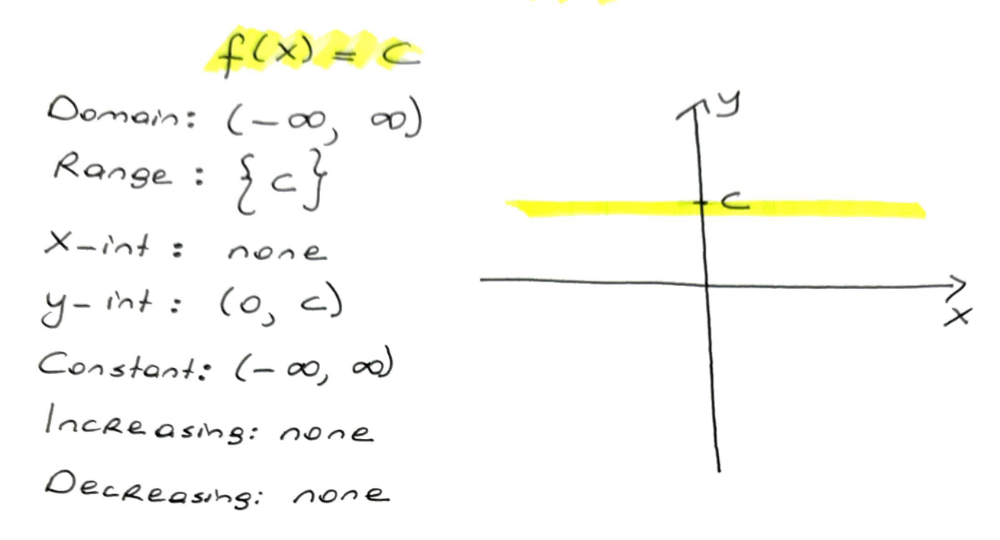 f(x) = c
Domain: (-∞, ∞)
Range: {c}
X-int: none
y-int: (0, c)
Constant: (-∞, ∞)
Increasing: none
Decreasing: none
y
c
x